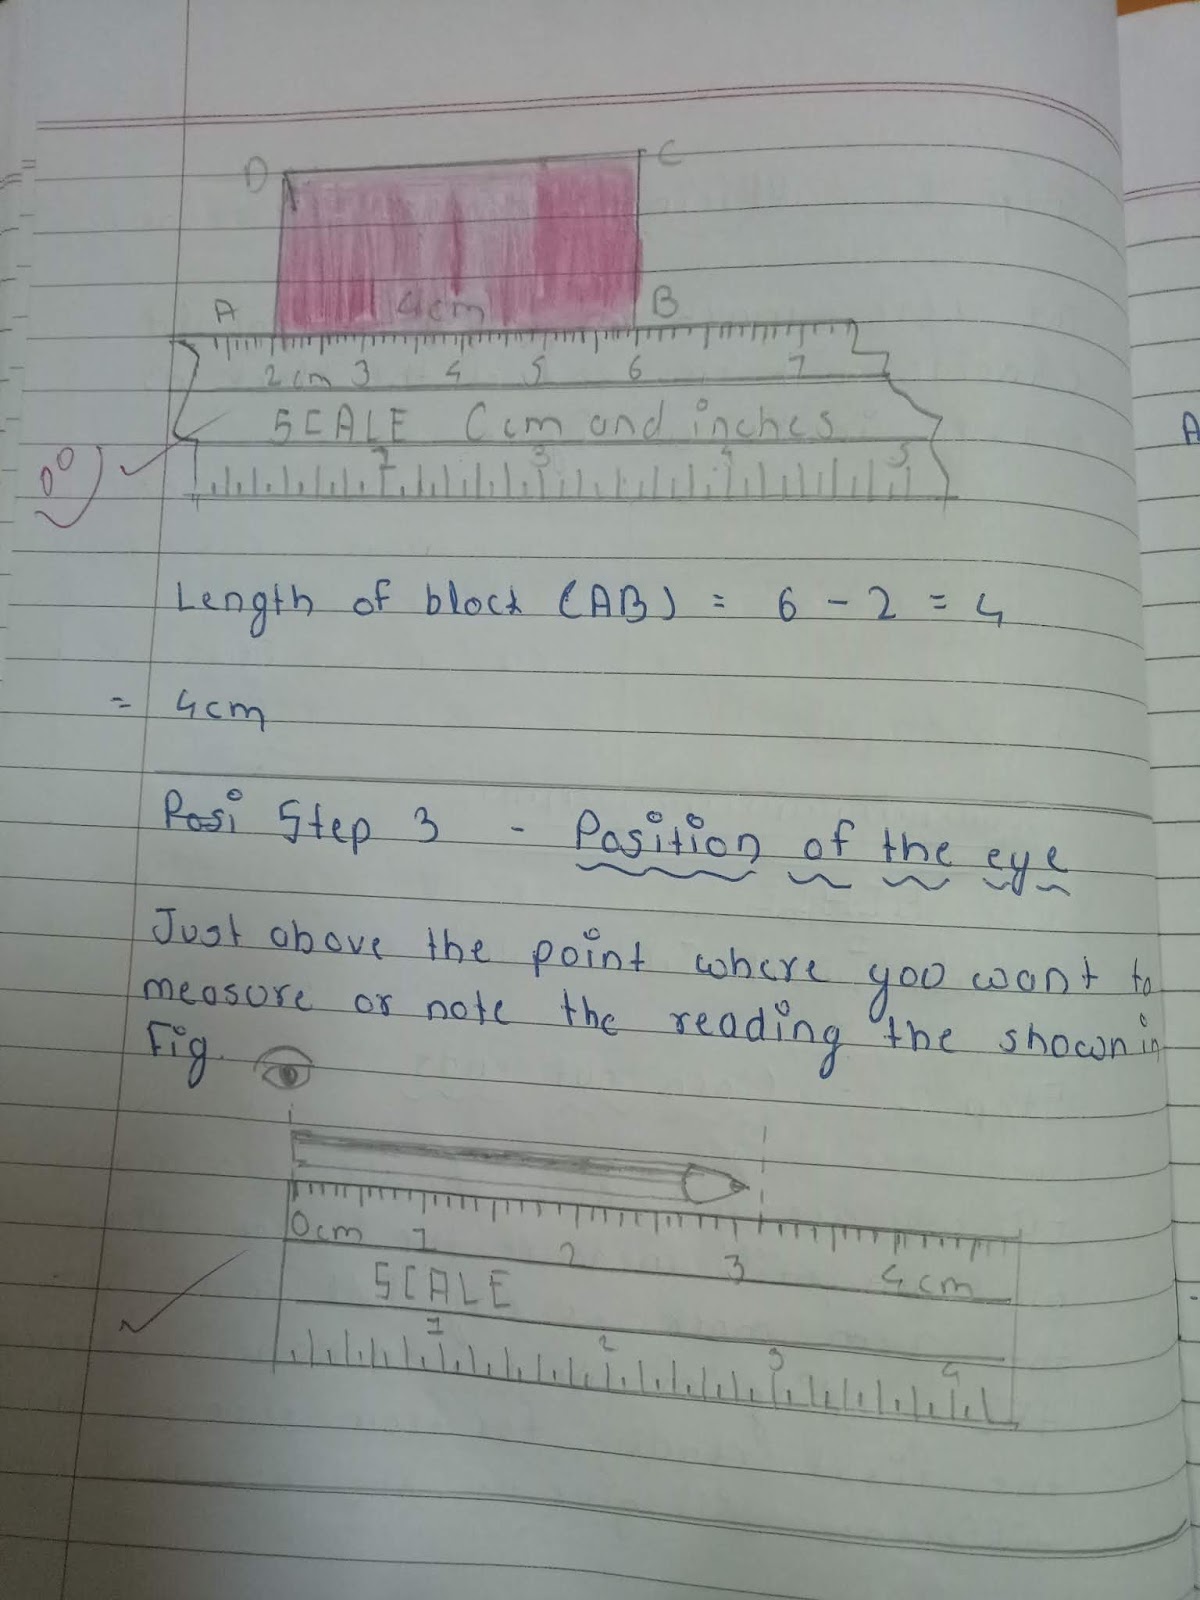 D C
A 4cm B
2cm 3 4 5 6 7
SCALE Ccm and inches
2 3 4 5
Length of block (AB) = 6 - 2 = 4
= 4cm
Posi Step 3 - Position of the eye
Just above the point where you want to
measure or note the reading the shown in
Fig.
0cm 1 2 3 4cm
SCALE
1 2 3 4